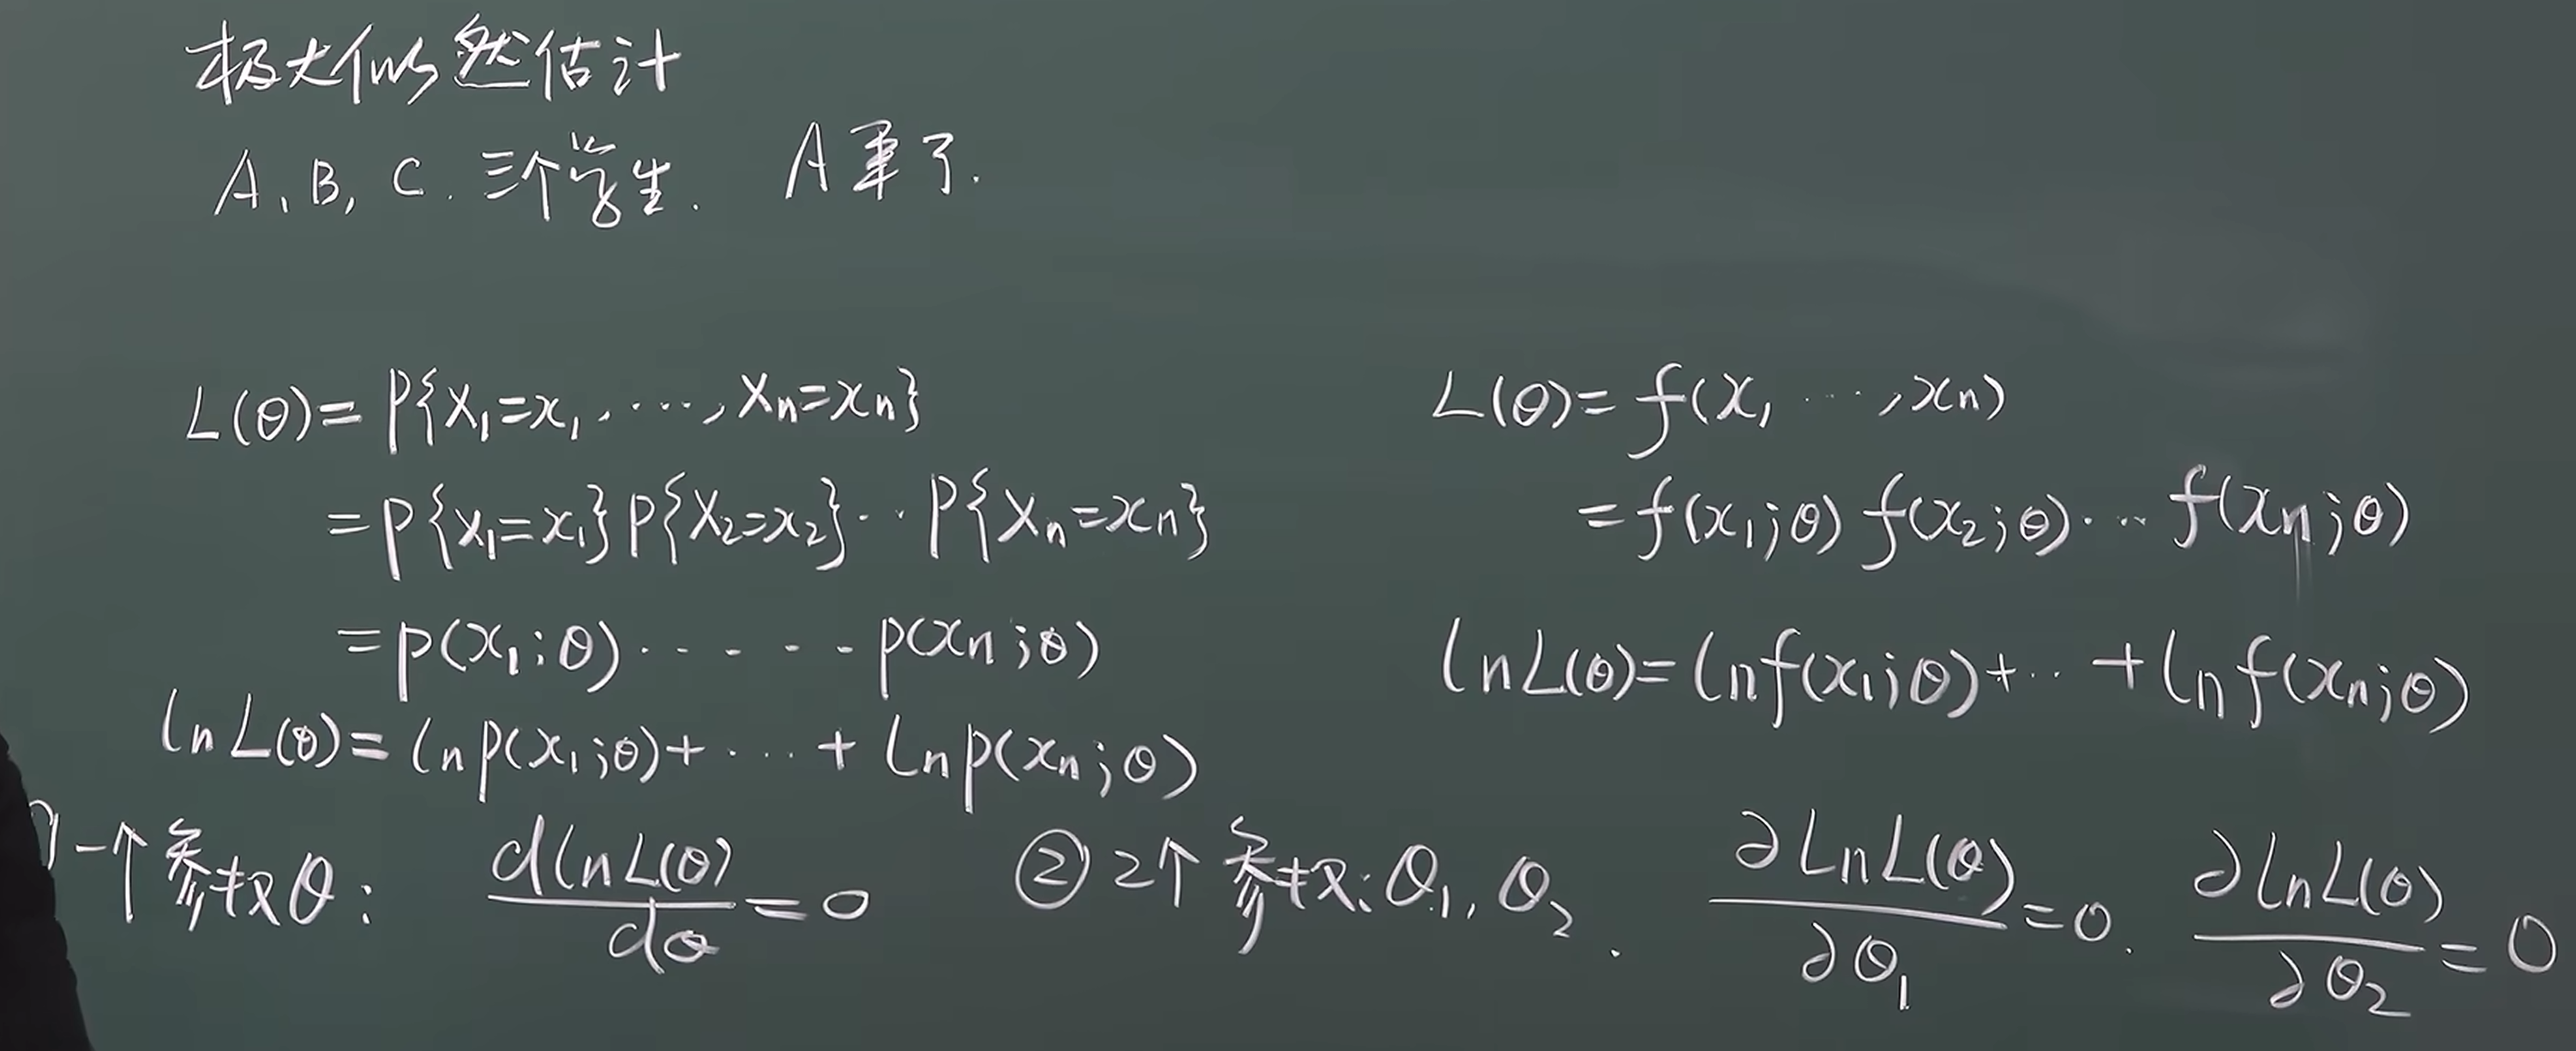 极大似然估计
A、B, C. 三个学生. A 来了.
L(θ)= P{X₁=x₁, ···, Xn=xn}
=P{X₁=x₁}P{X₂=x₂}··P{Xn=xn}
=p(x₁;θ)·····p(xn;θ)
lnL(θ)=lnp(x₁;θ)+···+lnp(xn;θ)
L(θ)= f(x₁ ···,xn)
=f(x₁;θ)f(x₂;θ)···f(xn;θ)
lnL(θ)=lnf(x₁;θ)+··+lnf(xn;θ)
一个参数θ: dlnL(θ)/dθ=0 ②2个参数:θ₁, θ₂. ∂lnL(θ)/∂θ₁=0. ∂lnL(θ)/∂θ₂=0